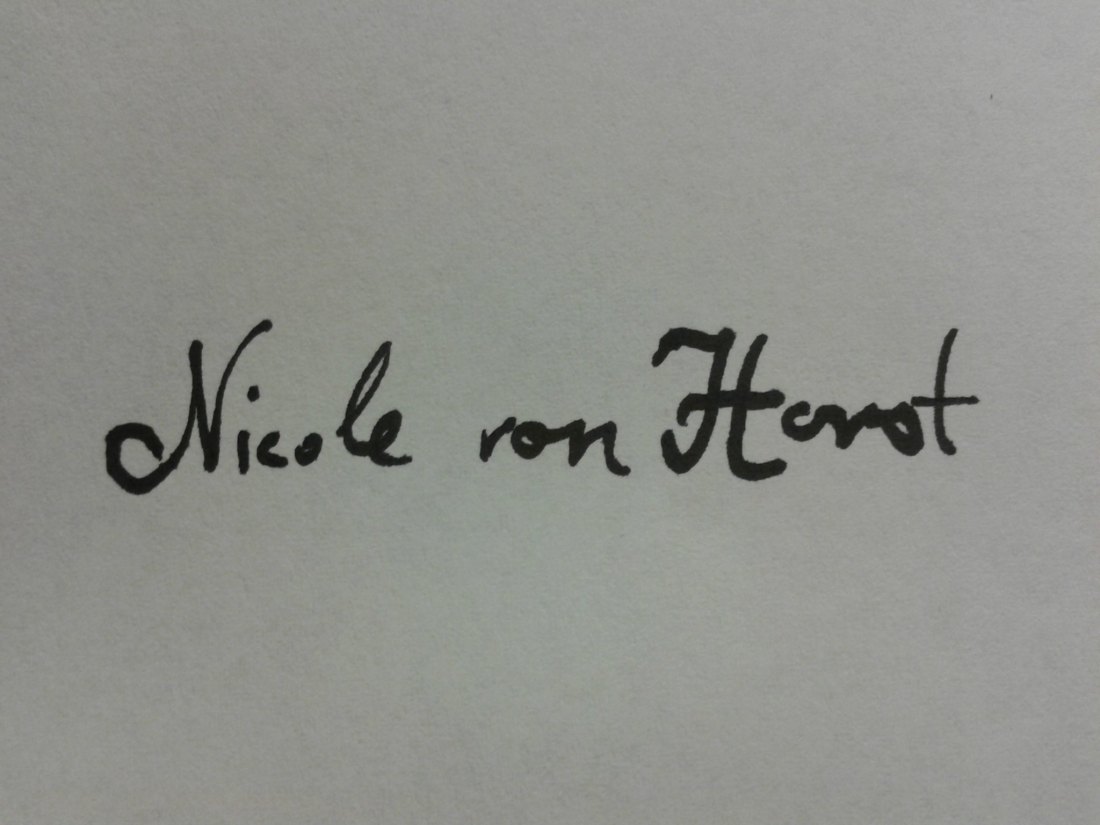 Nicole von Horst